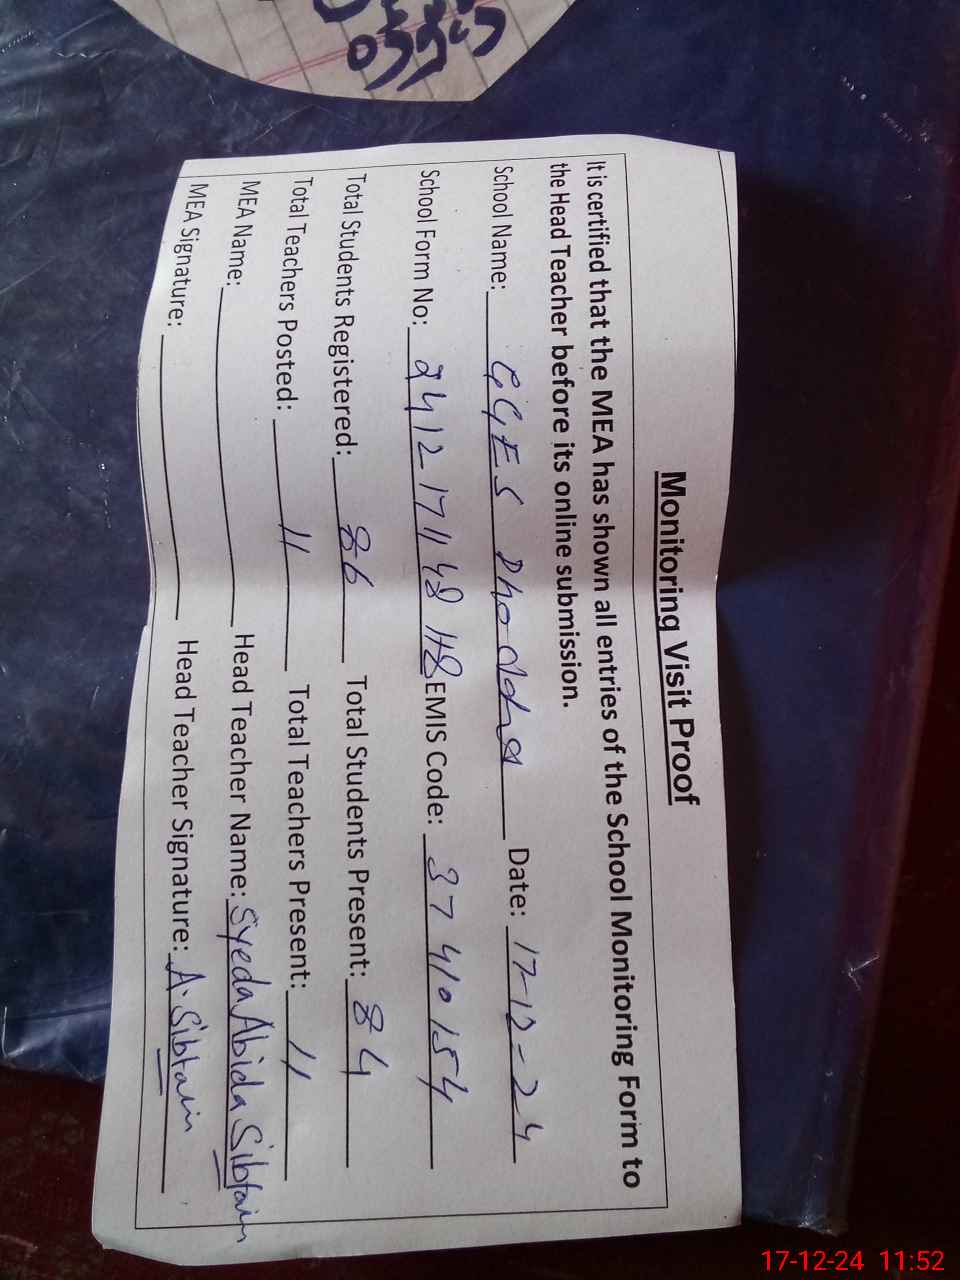 Monitoring Visit Proof
It is certified that the MEA has shown all entries of the School Monitoring Form to
the Head Teacher before its online submission.
School Name: GGES Dhodha Date: 17-12-24
School Form No: EMIS Code: 37410154
Total Students Registered: 86 Total Students Present: 84
Total Teachers Posted: 11 Total Teachers Present: 11
MEA Name: Head Teacher Name: Syeda Abida Sibtain
MEA Signature: Head Teacher Signature: A. Sibtain
17-12-24 11:52